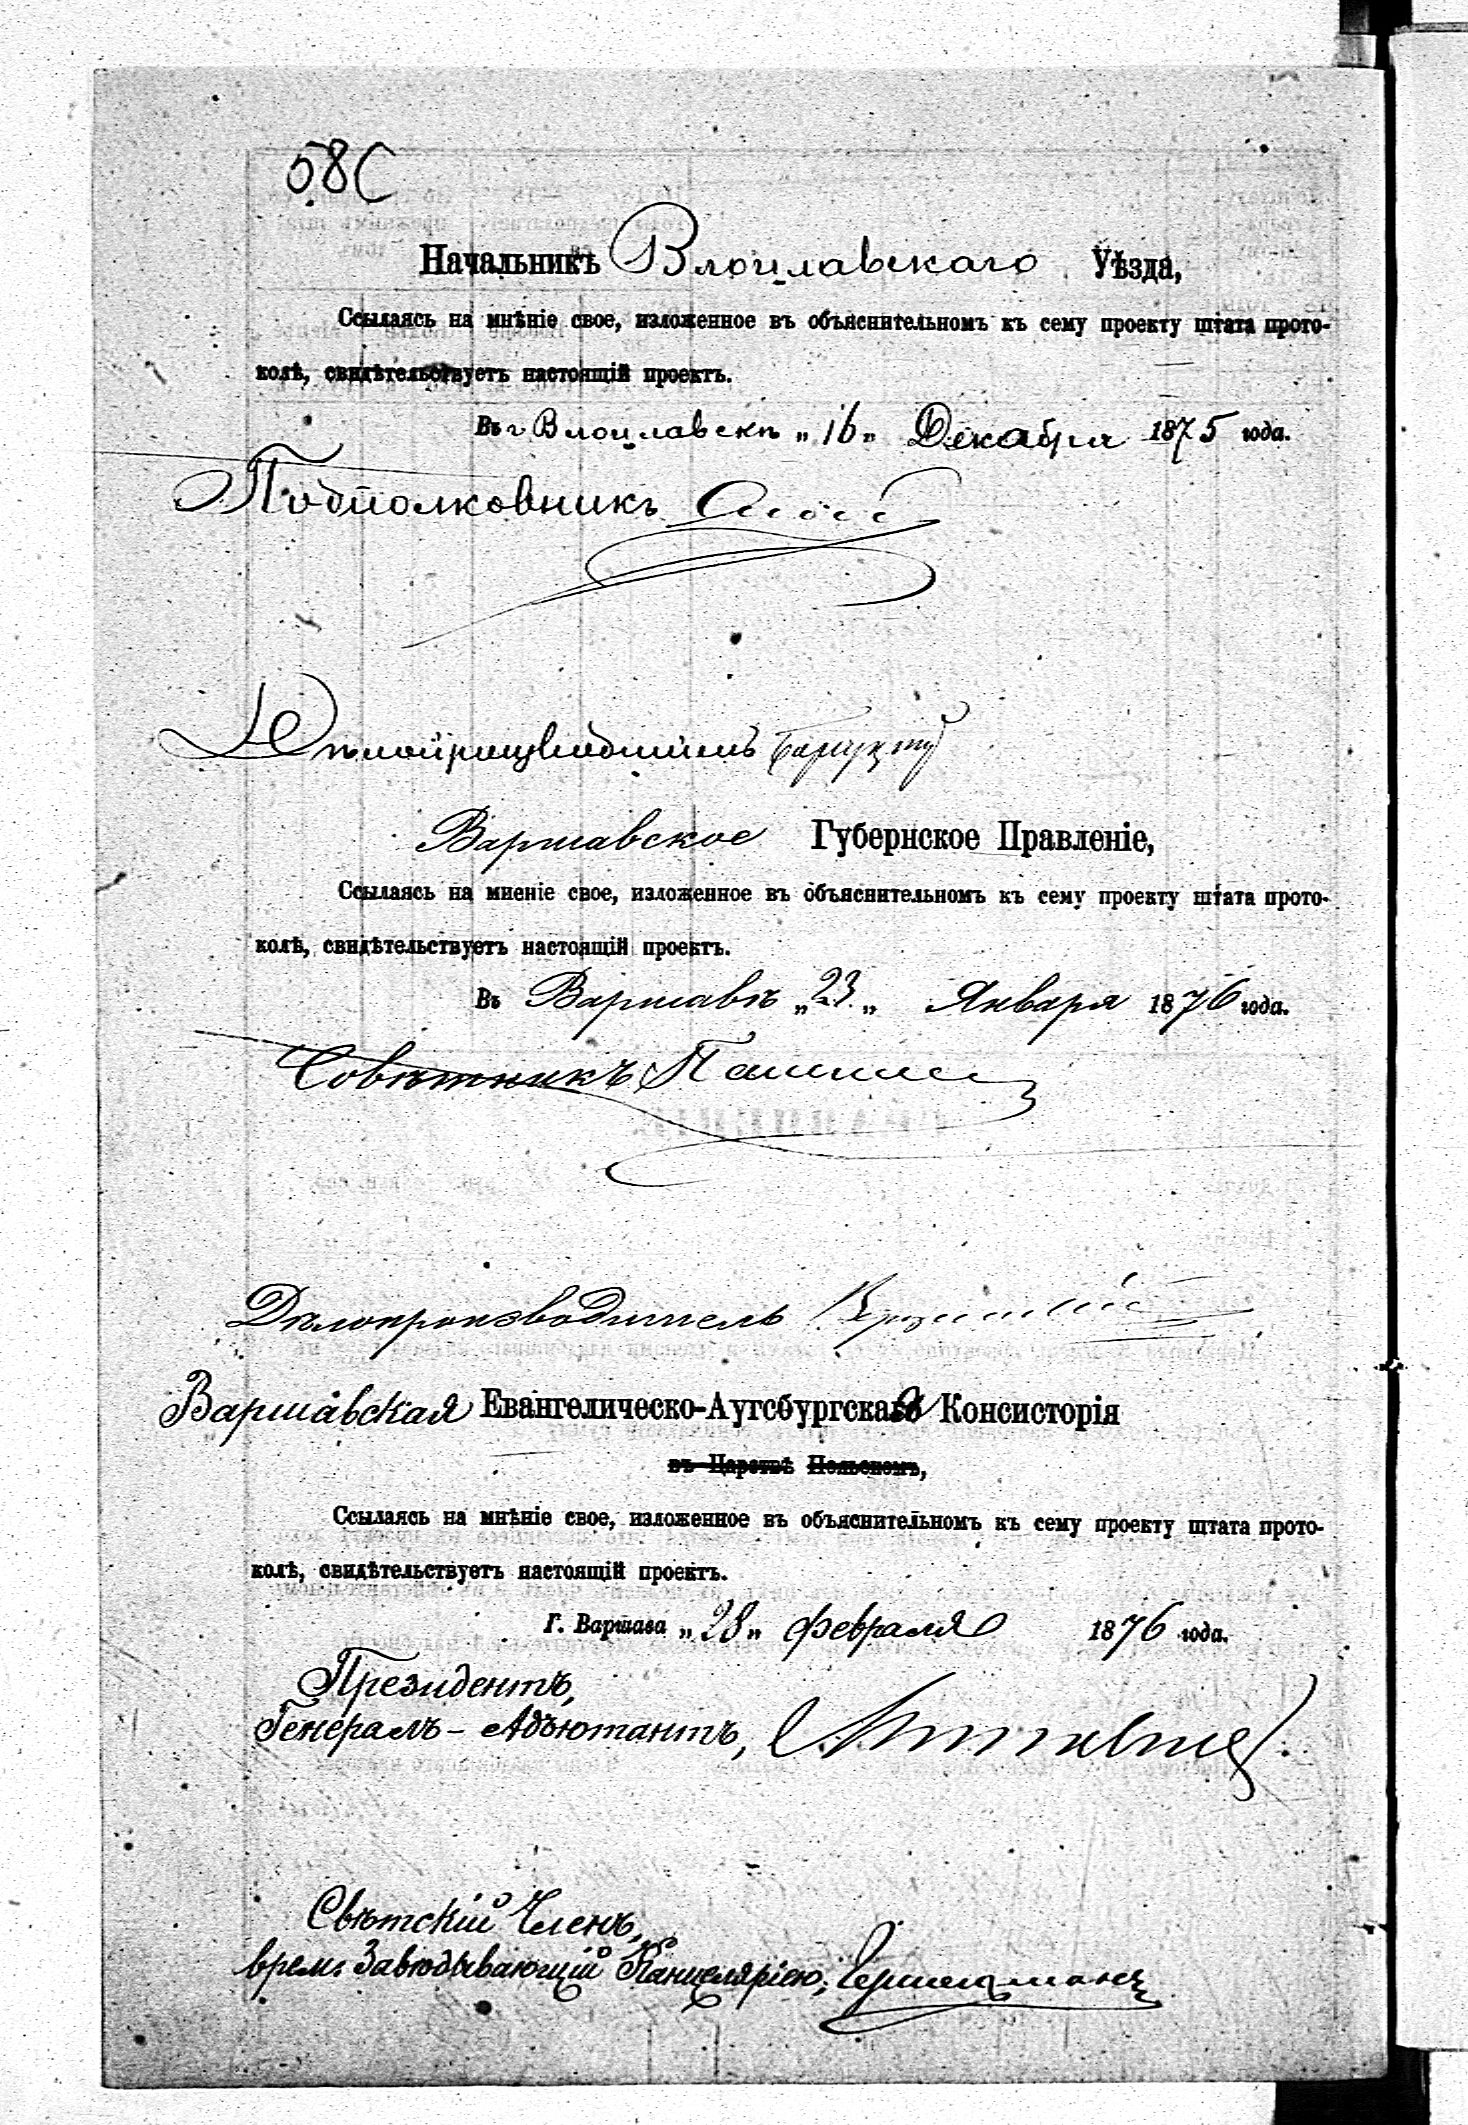 58C
Начальникъ Влоцлавскаго Уѣзда,
Ссылаясь на мнѣніе свое, изложенное въ объяснительномъ къ сему проекту штата прото-
колѣ, свидѣтельствуетъ настоящій проектъ.
Въ г Влоцлавскѣ „16„ Декабря 1875 года.
Подполковникъ
Дѣлопроизводитель
Варшавское Губернское Правленіе,
Ссылаясь на мненіе свое, изложенное въ объяснительномъ къ сему проекту штата прото-
колѣ, свидѣтельствуетъ настоящій проектъ.
Въ Варшавѣ „23„ Января 1876 года.
Совѣтникъ
Дѣлопроизводитель
Варшавская Евангелическо-Аугсбургская Консисторія
въ Царствѣ Польскомъ,
Ссылаясь на мнѣніе свое, изложенное въ объяснительномъ къ сему проекту штата прото-
колѣ, свидѣтельствуетъ настоящій проектъ.
Г. Варшава „28„ февраля 1876 года.
Президентъ,
Генералъ-Адъютантъ,
Свѣтскій Членъ,
врем. Завѣдывающій Канцеляріею,